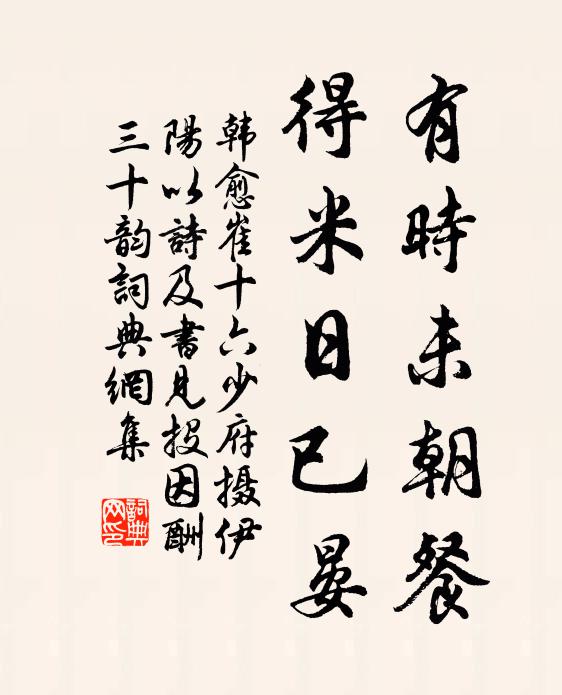 有時未朝餐
得米日已晏
韩愈崔十六少府摄伊
陽以詩及書見投因酬
三十韵詞典網集
詞典
网印